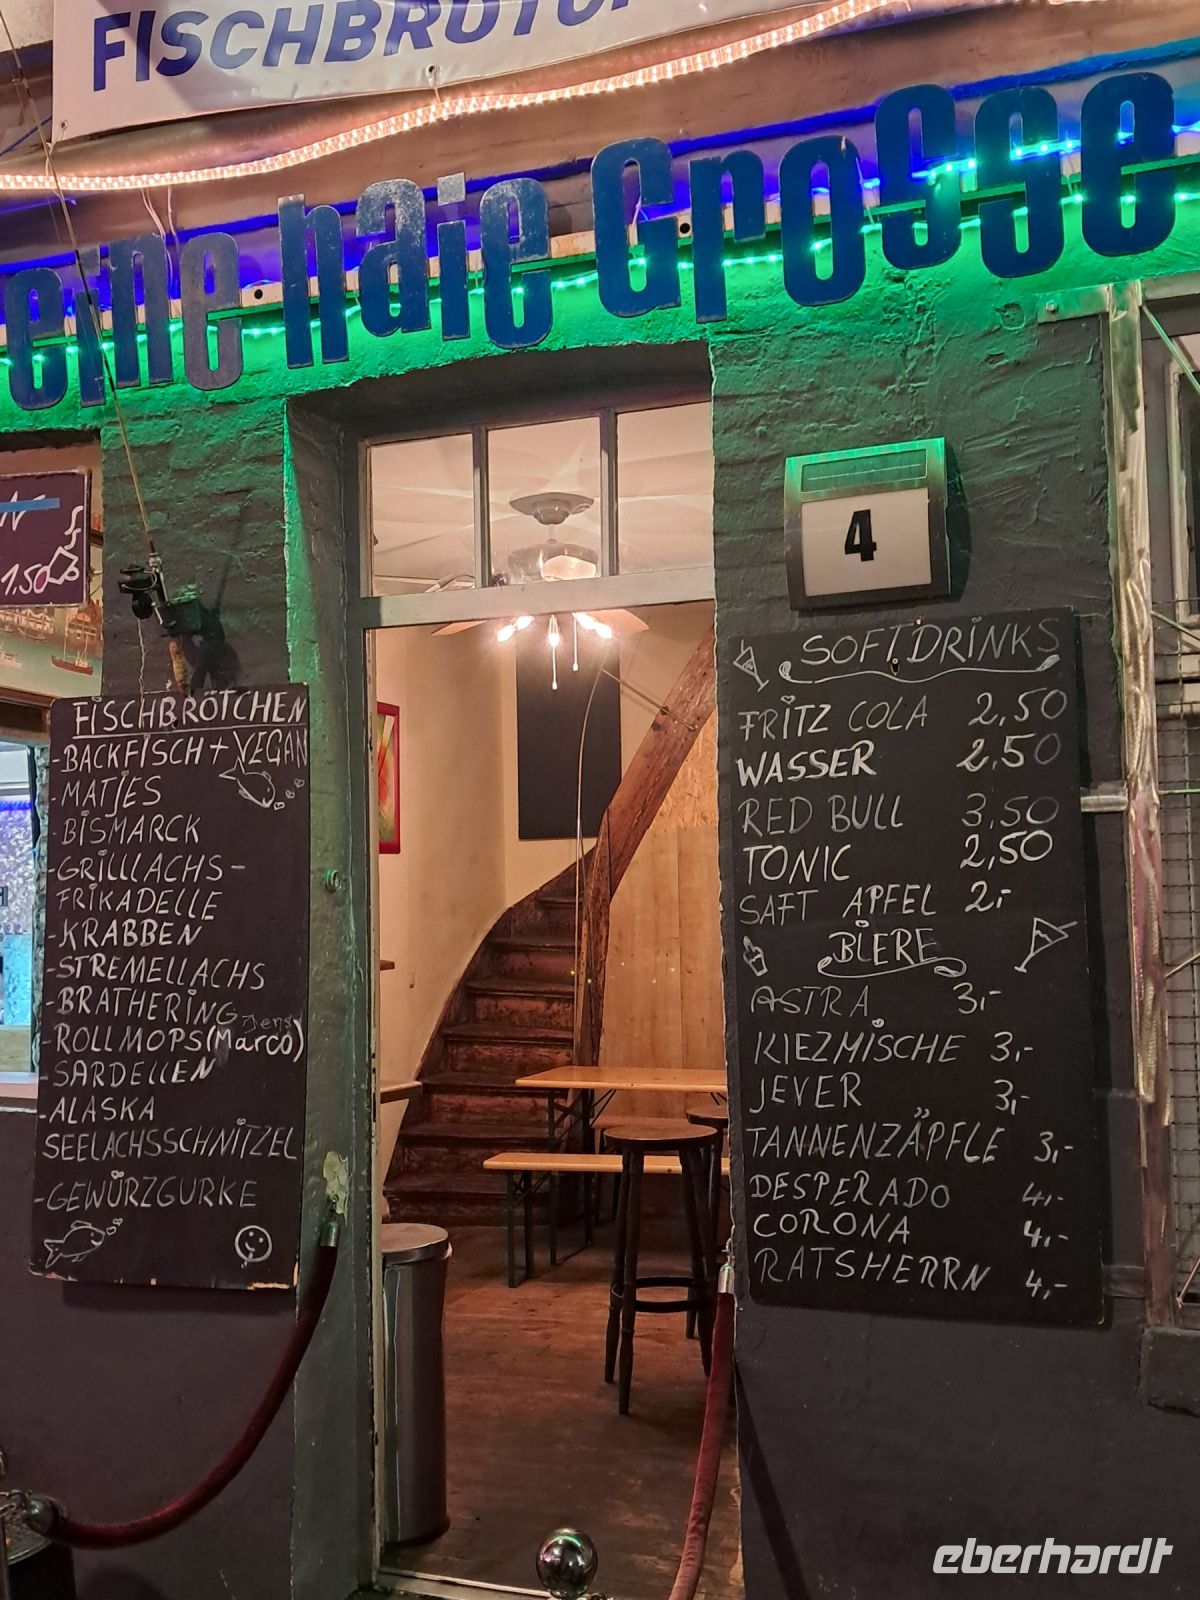 FISCHBRÖTCH
eine haie Grosse
1.50
4
FISCHBRÖTCHEN
-BACKFISCH + VEGAN
-MATJES
-BISMARCK
-GRILLLACHS-
FRIKADELLE
-KRABBEN
-STREMELLACHS
-BRATHERING
Jens
-ROLLMOPS (Marco)
-SARDELLEN
-ALASKA
SEELACHSSCHNITZEL
-GEWÜRZGURKE
SOFTDRINKS
FRITZ COLA 2,50
WASSER 2,50
RED BULL 3,50
TONIC 2,50
SAFT APFEL 2,-
BIERE
ASTRA 3,-
KIEZMISCHE 3,-
JEVER 3,-
TANNENZÄPFLE 3,-
DESPERADO 4,-
CORONA 4,-
RATSHERRN 4,-
eberhardt